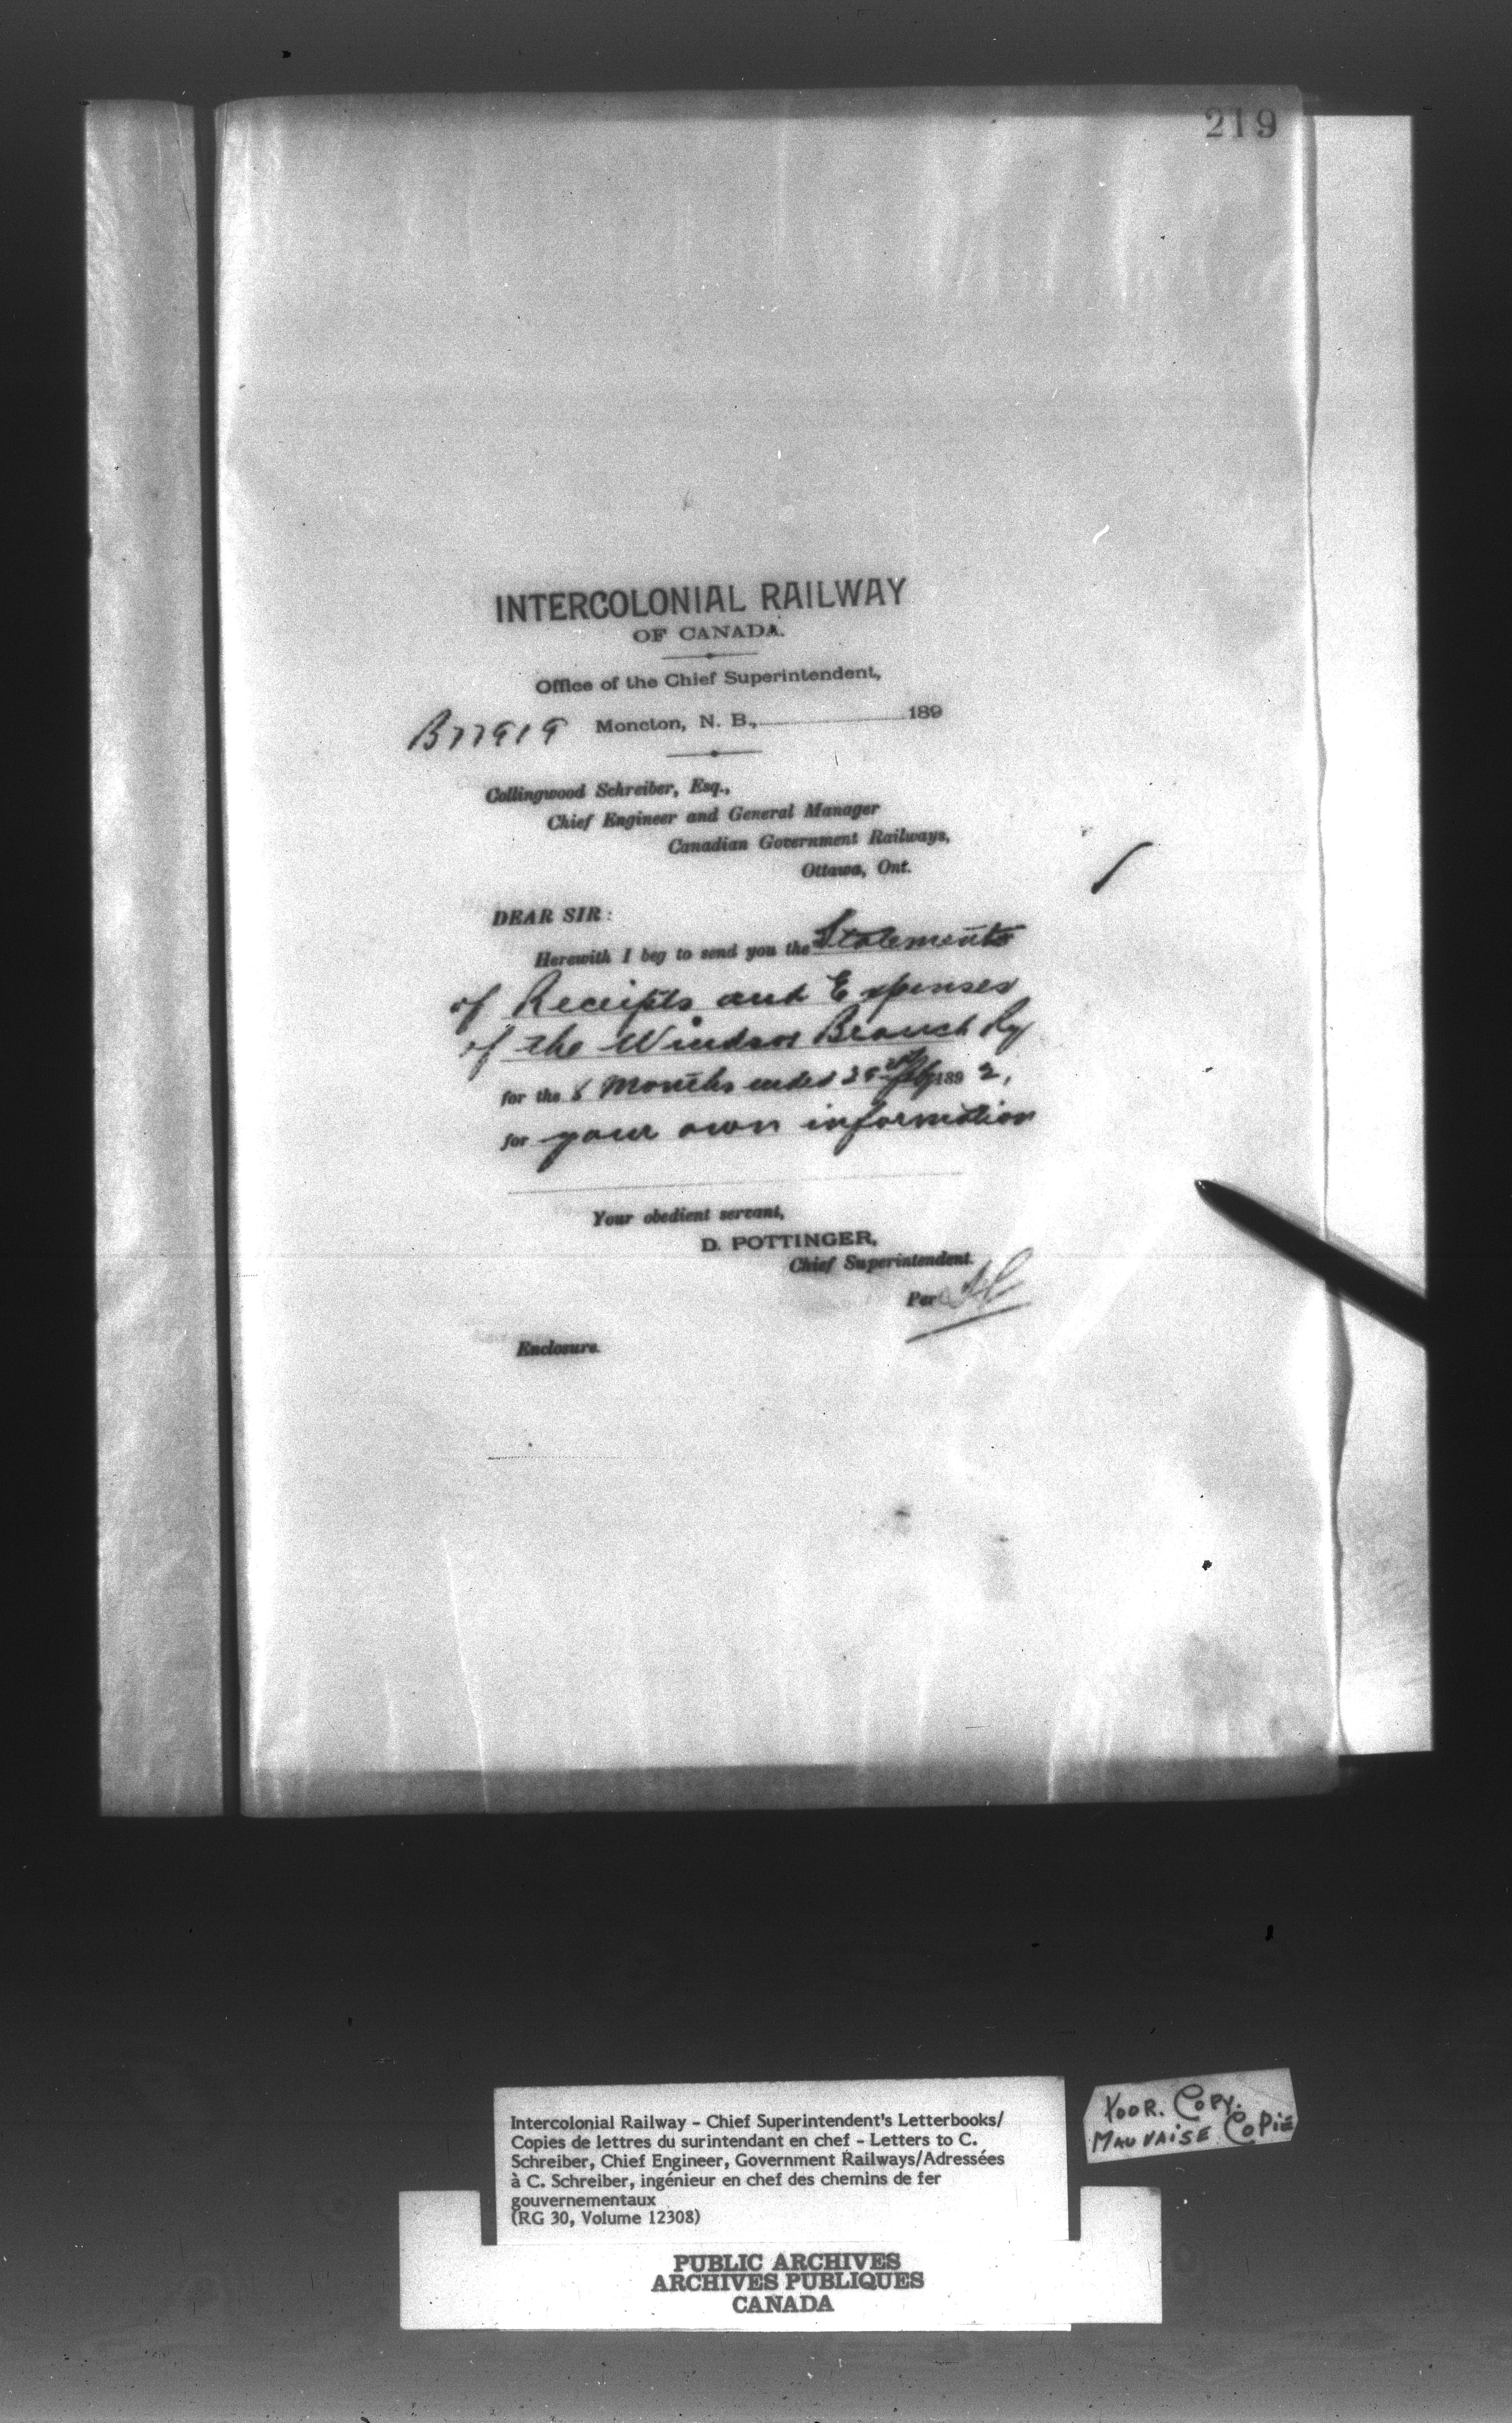 219
INTERCOLONIAL RAILWAY
OF CANADA.
Office of the Chief Superintendent,
B77919 Moncton, N. B., 189
Collingwood Schreiber, Esq.,
Chief Engineer and General Manager
Canadian Government Railways,
Ottawa, Ont.
DEAR SIR:
Herewith I beg to send you the Statements
of Receipts and Expenses
of the Windsor Branch Ry
for the 8 Months ended 189 2,
for your own information
Your obedient servant,
D. POTTINGER,
Chief Superintendent.
Per
Enclosure.
Intercolonial Railway - Chief Superintendent's Letterbooks/
Copies de lettres du surintendant en chef - Letters to C.
Schreiber, Chief Engineer, Government Railways/Adressées
à C. Schreiber, ingénieur en chef des chemins de fer
gouvernementaux
(RG 30, Volume 12308)
POOR. COPY.
MAUVAISE COPIE
PUBLIC ARCHIVES
ARCHIVES PUBLIQUES
CANADA